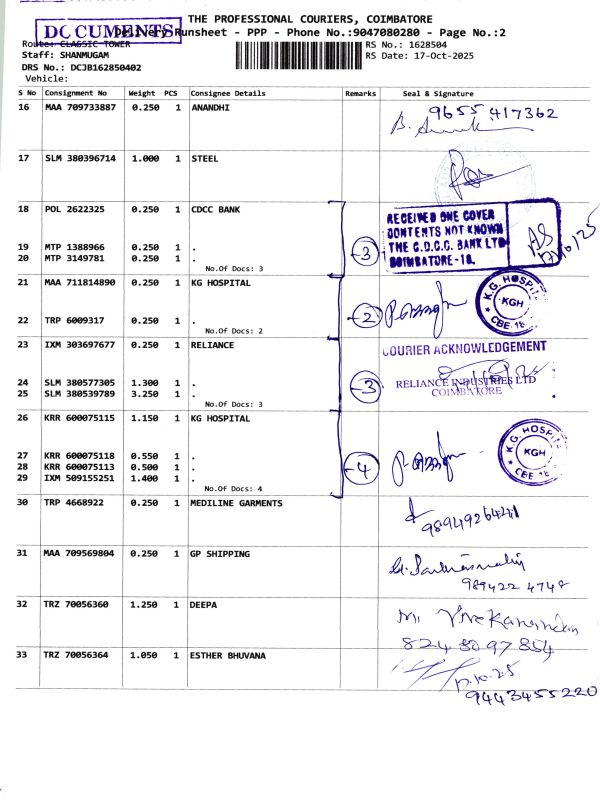 THE PROFESSIONAL COURIERS, COIMBATORE
DOCUMENTS
Delivery Runsheet - PPP - Phone No.:9047080280 - Page No.:2
Route: CLASSIC TOWER
RS No.: 1628504
Staff: SHANMUGAM
RS Date: 17-Oct-2025
DRS No.: DCJB162850402
Vehicle:
S No Consignment No Weight PCS Consignee Details Remarks Seal & Signature
16 MAA 709733887 0.250 1 ANANDHI 9655 417362
17 SLM 380396714 1.000 1 STEEL
18 POL 2622325 0.250 1 CDCC BANK
RECEIVED ONE COVER
CONTENTS NOT KNOWN
THE C.D.C.C. BANK LTD
COIMBATORE-18.
17/10/25
19 MTP 1388966 0.250 1 .
20 MTP 3149781 0.250 1 .
-3
No.Of Docs: 3
21 MAA 711814890 0.250 1 KG HOSPITAL
K.G. HOSPITAL
KGH
CBE-18
22 TRP 6009317 0.250 1 .
-2
No.Of Docs: 2
23 IXM 303697677 0.250 1 RELIANCE
COURIER ACKNOWLEDGEMENT
24 SLM 380577305 1.300 1 .
25 SLM 380539789 3.250 1 .
-3
RELIANCE INDUSTRIES LTD
COIMBATORE
No.Of Docs: 3
26 KRR 600075115 1.150 1 KG HOSPITAL
K.G. HOSPITAL
KGH
CBE-18
27 KRR 600075118 0.550 1 .
28 KRR 600075113 0.500 1 .
29 IXM 509155251 1.400 1 .
-4
No.Of Docs: 4
30 TRP 4668922 0.250 1 MEDILINE GARMENTS
31 MAA 709569804 0.250 1 GP SHIPPING
989422 4748
32 TRZ 70056360 1.250 1 DEEPA
824 8097854
33 TRZ 70056364 1.050 1 ESTHER BHUVANA
17.10.25
9443455220